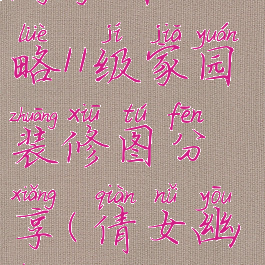 lüè jí jiā yuán
略11级家园
zhuāng xiū tú fēn
装修图分
xiǎng qiàn nǚ yōu
享(倩女幽